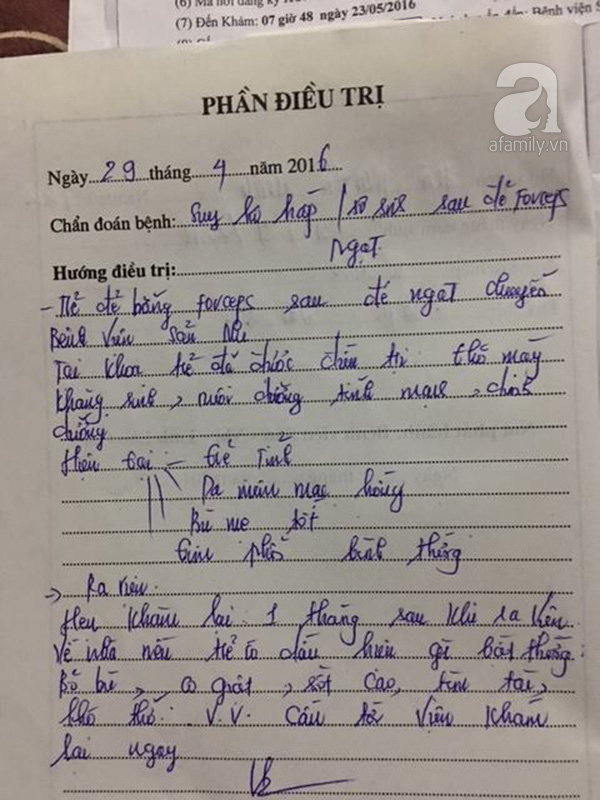 (7) Đến Khám: 07 giờ 48 ngày 23/05/2016
Bệnh viện S
a
afamily.vn
PHẦN ĐIỀU TRỊ
Ngày 29 tháng 4 năm 2016
Chẩn đoán bệnh: Suy hô hấp / sơ sinh sau đẻ Forceps
ngạt
Hướng điều trị:
- Trẻ đẻ bằng forceps sau đẻ ngạt chuyển
Bệnh viện Sản Nhi
Tại khoa trẻ đã được điều trị thở máy
Kháng sinh, nuôi dưỡng tĩnh mạch,
dưỡng
Hiện tại - Trẻ tỉnh
Da niêm mạc hồng
Bú mẹ tốt
tim phổi bình thường
→ Ra viện
Hẹn khám lại 1 tháng sau khi ra viện
Về nhà nếu trẻ có dấu hiệu gì bất thường
Bỏ bú, co giật, sốt cao, tím tái,
khó thở v.v. cần tới viện khám
lại ngay